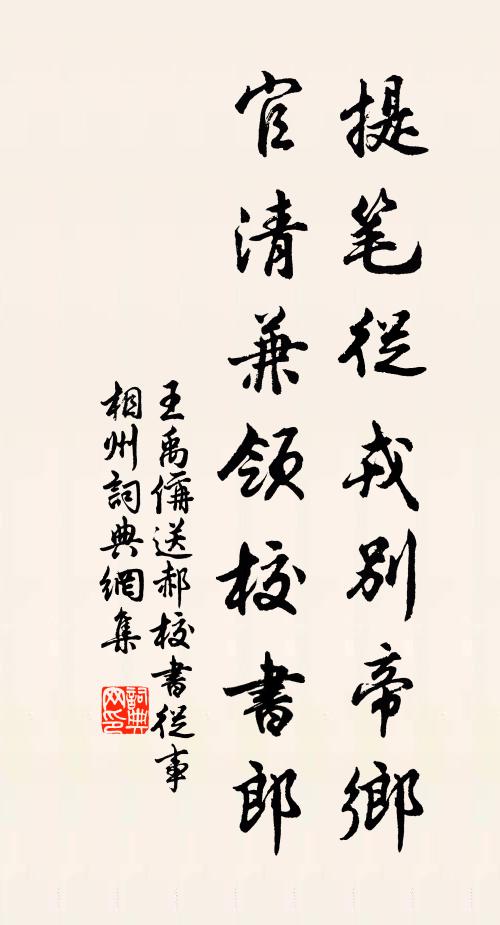 提笔從戎別帝鄉
官清兼領校書郎
王禹偁送郝校書從事
相州詞典網集
詞典网印